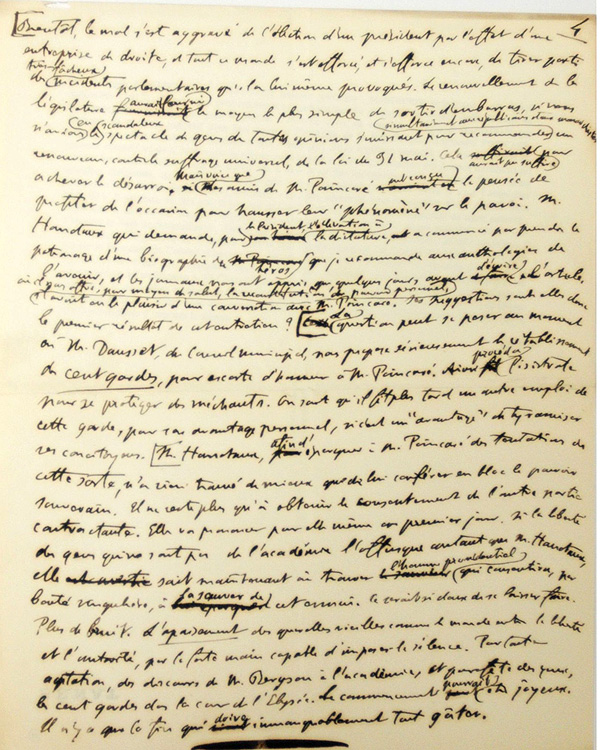 4
[Bientôt, le mal s'est aggravé de l'élection d'un président par l'effet d'une
entreprise de droite, et tout ce monde s'est efforcé, et s'efforce encore, de tirer parti
très fâcheux
des incidents parlementaires lui même provoqués. Le renouvellement de la
législature aurait fourni le moyen le plus simple de sortir d'embarras, si nous
simultanément aux républicains dans
n'avions eu le scandaleux spectacle de gens de toutes opinions s'unissant pour recommander un
renouveau, contre le suffrage universel, de la loi du 31 mai. Cela aurait pu suffire pour
achever le désarroi. Mais voici que des amis de M. Poincaré ont conçu la pensée de
profiter de l'occasion pour hausser leur "phénomène" sur le pavoi. M.
Hanotaux qui demande, pour le Président, l'élévation à la dictature, a commencé par prendre le
patronage d'une biographie du héros que je recommande aux anthologies de
l'avenir, et les journaux nous ont appris que, quelques jours avant d'écrire l'article,
où il nous offre, pour unique de salut, la reconstitution du pouvoir personnel,
il avait eu le plaisir d'une conversation avec M. Poincaré. Ses suggestions sont elles donc
le premier résultat de cet entretien ? [La question peut se poser au moment
où M. Dausset, du Conseil municipal, nous propose sérieusement le rétablissement
des cent gardes, pour escorte d'honneur à M. Poincaré. Ainsi procéda Pisistrate
pour se protéger des méchants. On sait qu'il fit plus tard un autre emploi de
cette garde, pour son avantage personnel, si c'est un "avantage" de tyranniser
ses concitoyens. [M. Hanotaux, afin d'épargner à M. Poincaré des tentations de
cette sorte, n'a rien trouvé de mieux que de lui conférer en bloc le pouvoir
souverain. Il ne reste plus qu'à obtenir le consentement de l'autre partie
contractante. Elle va prononcer pour elle même ces premiers jours. Si la liberté
des gens qui ne sont pas de l'académie l'offusque autant que M. Hanotaux,
elle sait maintenant où trouver l'homme providentiel qui consentira, par
bonté singulière, à la sauver de cet ennui. Ce serait si doux de se laisser faire.
Plus de bruit. L'apaisement des querelles vieilles comme le monde entre la liberté
et l'autorité, par la forte main capable d'imposer le silence. Pour toute
agitation, des discours de M. Bergson à l'académie, et
les cent gardes dans la cour de l'Elysée. Le commencement pourrait être joyeux.
Il n'y a que la fin qui doive immanquablement tout gâter.